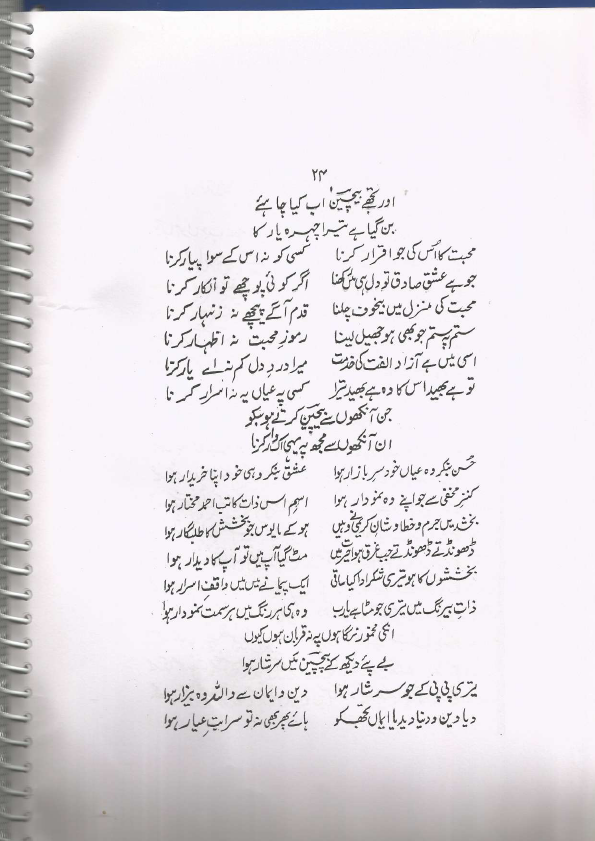 ۲۴
اور تجھے بیچین اب کیا چاہئے
بن گیا ہے تیرا چہرہ یار کا
محبت کا اُس کی جو اقرار کرنا کسی کو نہ اس کے سوا پیار کرنا
جو ہے عشق صادق تو دل ہی میں رکھنا اگر کوئی پوچھے تو انکار کرنا
محبت کی منزل میں بیخوف چلنا قدم آگے پیچھے نہ زنہار کرنا
ستم پر ستم جو بھی ہو جھیل لینا رموزِ محبت نہ اظہار کرنا
اسی میں ہے آزاد الفت کی خدمت میرا دردِ دل کم نہ اے یار کرنا
تو ہے بھید اس کا وہ ہے بھید تیرا کسی پہ عیاں یہ نہ اسرار کرنا
جن آنکھوں نے بیچین کرتے ہو سبکو
ان آنکھوں سے مجھ پہ بھی اک وار کرنا
حُسن بنکر وہ عیاں خود سرِ بازار ہوا عشق بنکر وہی خود اپنا خریدار ہوا
کنزِ مخفی سے جو اپنے وہ نمودار ہوا اسمِ اس ذات کا تب احمد مختار ہوا
بخشدیں جرم و خطا و شانِ کریمی نے وہیں ہو کے مایوس جو بخشش کا طلبگار ہوا
ڈھونڈتے ڈھونڈتے جب غرق ہوا حیرت میں مٹ گیا آپ میں تو آپ کا دیدار ہوا
بخششوں کا ہو تیری شکر ادا کیا ساقی ایک پیمانے میں میں واقفِ اسرار ہوا
ذاتِ بیرنگ میں تیری جو مٹا ہے یارب وہ ہی ہر رنگ میں ہر سمت نمودار ہوا
انکی مخمور نگاہوں پہ نہ قربان ہوں کیوں
بے پئے دیکھ کے بیچین میں سرشار ہوا
تیری پی پی کے جو سرشار ہوا دین و ایمان سے واللہ وہ بیزار ہوا
دیا دین و دنیا دیدیا ایماں تجھکو ہائے پھر بھی نہ تو عیار ہوا